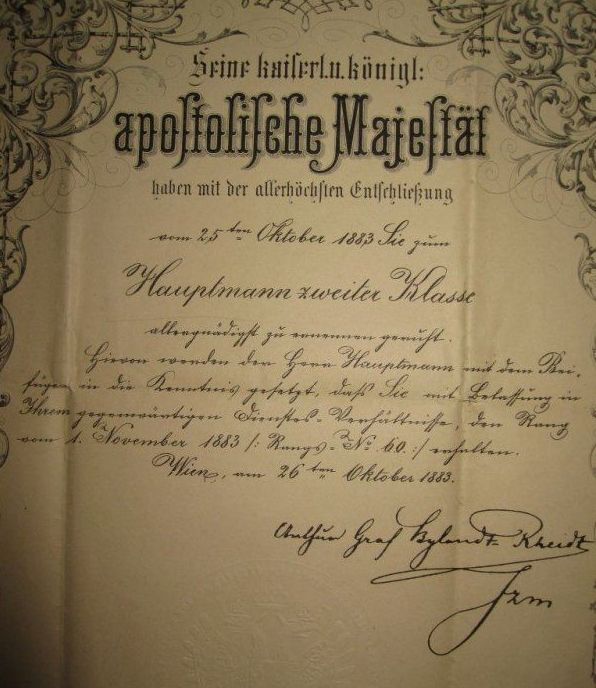 Seine kaiserl. u. königl:
apostolische Majestät
haben mit der allerhöchsten Entschließung
vom 25ten Oktober 1883 Sie zum
Hauptmann zweiter Klasse
allergnädigst zu ernennen geruht.
Hievon werden der Herr Hauptmann mit dem Bei-
fügen in die Kenntnis gesetzt, daß Sie mit Belassung in
Ihrem gegenwärtigen Dienstes-Verhältnisse, den Rang
vom 1. November 1883 /: Rangs-No 60. :/ erhalten.
Wien, am 26ten Oktober 1883.
Arthur Graf Bylandt-Rheidt
Fzm